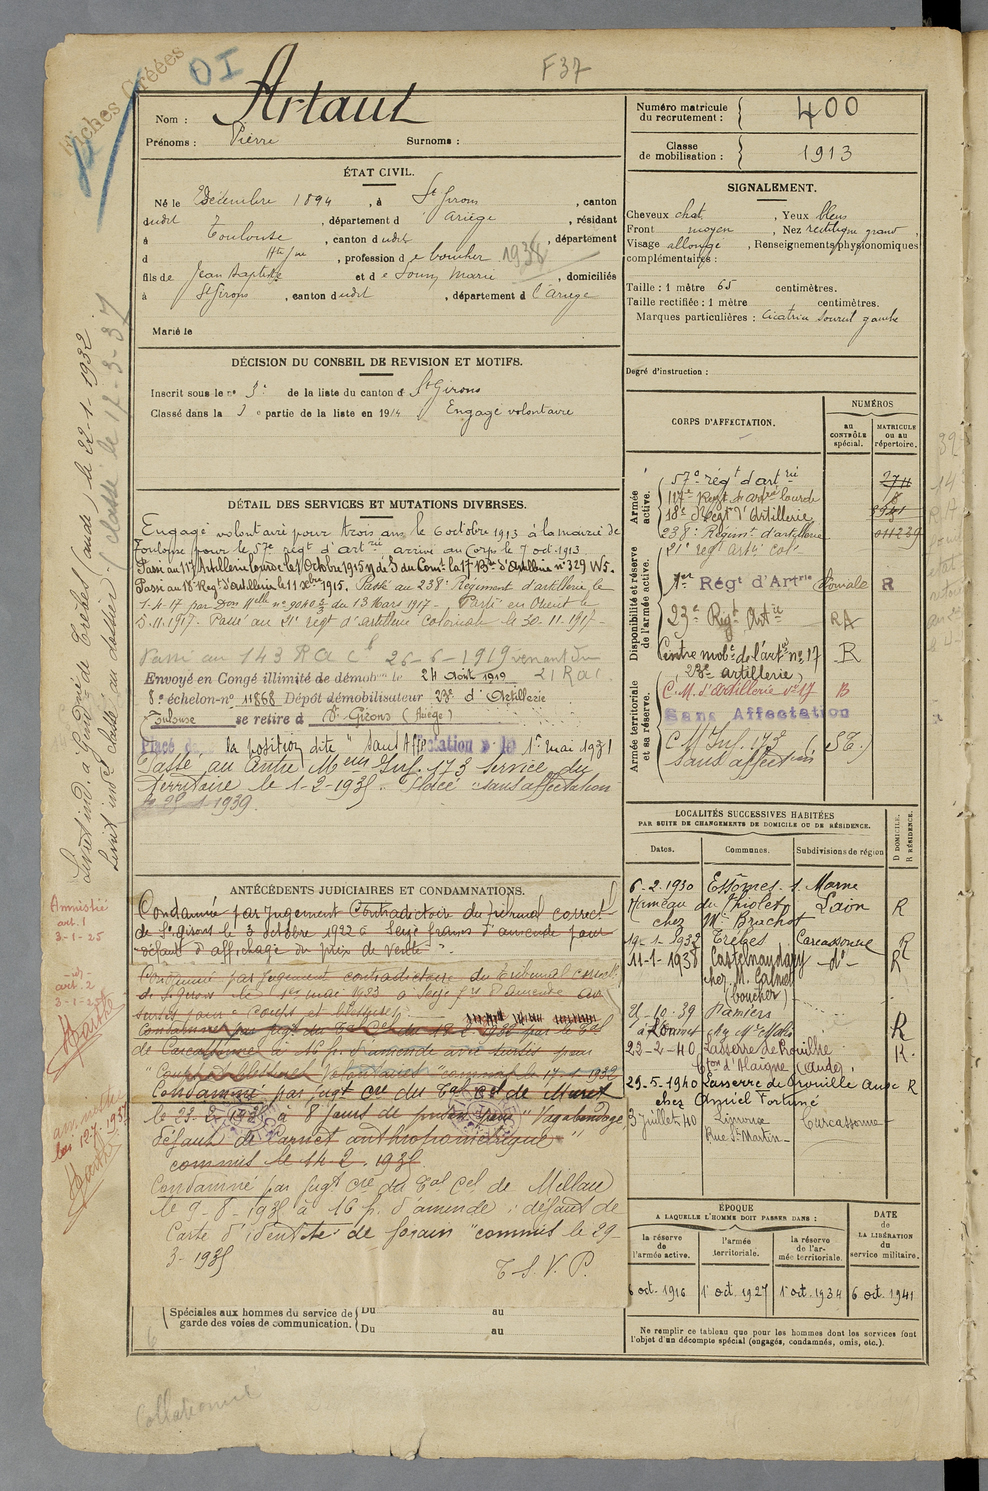 Fiches Créées
OI
F37
Nom : Artaut
Prénoms : Pierre Surnoms :
Numéro matricule du recrutement : 400
Classe de mobilisation : 1913
ÉTAT CIVIL.
Né le Décembre 1894, à St Girons, canton
dudit, département d Ariège, résidant
à Toulouse, canton dudit, département
d Hte Gne, profession de boucher 1938
fils de Jean Baptiste et de Souny Marie, domiciliés
à St Girons, canton dudit, département d l'Ariège
Marié le
SIGNALEMENT.
Cheveux chat, Yeux bleus
Front moyen, Nez rectiligne grand,
Visage allongé, Renseignements physionomiques
complémentaires :
Taille : 1 mètre 65 centimètres.
Taille rectifiée : 1 mètre centimètres.
Marques particulières : Cicatrice sourcil gauche
Degré d'instruction :
DÉCISION DU CONSEIL DE REVISION ET MOTIFS.
Inscrit sous le no 5 de la liste du canton de St Girons
Classé dans la 3 e partie de la liste en 1914 Engagé volontaire
DÉTAIL DES SERVICES ET MUTATIONS DIVERSES.
Engagé volontaire pour trois ans, le 6 octobre 1913 à la mairie de
Toulouse pour le 57e régt d'artrie arrivé au Corps le 7 oct. 1913
Passé au 117e Artillerie Lourde le 1 Octobre 1915 N de S du Comt la 17e Bde d'Artillerie no 329 W5.
Passé au 18e Régt d'Artillerie le 11 Xbre 1915. Passé au 238e Régiment d'artillerie le
1-4-17 par Don Mlle no 9040 3/3 du 13 Mars 1917 - Parti en Orient le
5-11-1917. Passé au 21e régt d'artillerie Coloniale le 20-11-1917-
Passé au 143 RAC le 26-6-1919 venant du
Envoyé en Congé illimité de démobon le 24 Août 1919 21 Rac.
8e échelon-no 11868 Dépôt démobilisateur 23e d'Artillerie
Toulouse se retire à St Girons (Ariège)
Placé dans la position dite "Sans Affectation" le 1er mai 1931
Passé au Centre Meur Inf. 173 Service du
territoire le 1-2-1938. Placé "sans affectation
1939.
CORPS D'AFFECTATION.
NUMÉROS
au CONTRÔLE spécial.
MATRICULE ou au répertoire.
Armée active.
57e régt d'artrie
117e Régt d'artrie lourde
18e Régt d'Artillerie
238e Régimt d'artillerie 011239
21e régt artie col
Disponibilité et réserve de l'armée active.
1er Régt d'Artrie Coloniale R
23e Régt Artie RA
Centre mobe de l'arte no 17 R
(23e artillerie)
Armée territoriale et sa réserve.
C.M. d'artillerie no 17 R
Sans Affectation
C M Inf. 173 (S T.)
Sans affectation
LOCALITÉS SUCCESSIVES HABITÉES
PAR SUITE DE CHANGEMENTS DE DOMICILE OU DE RÉSIDENCE.
Dates. Communes. Subdivisions de région D DOMICILE. R RÉSIDENCE.
6-2-1930 Essômes s. Marne
Hameau du Thiolet Laon R
chez Mr Brachot
19-1-1932 Trèbes Carcassonne R
11-1-1938 Castelnaudary -do- R
chez M. Calmet
(boucher)
21-10-39 Pamiers
R
22-2-40 Lasserre de Prouilhe R.
Cton d'Alaigne (Aude)
29-5-1940 Lasserre de Prouille Aude R
chez Amiel Fortuné
3 juillet 40 Carcassonne
Rue St Martin -
ANTÉCÉDENTS JUDICIAIRES ET CONDAMNATIONS.
Condamné par Jugement Contradictoire du Tribunal correctl
de St Girons le 3 octobre 1922 à Seize francs d'amende pour
"défaut d'affichage du prix de vente".
Condamné par jugement contradictoire du Tribunal correctl
de St Girons le 1er mai 1923 à Seize frs d'amende avec
sursis pour "coups et blessures".
Condamné par jugt du Tal Cel le par le Tal
de Carcassonne à 16 f. d'amende avec sursis pour
"Coups et blessures Volontaires" commis le 17-1-1932
Condamné par jugt cre du Tal Cel de Muret
le 23-2-1938 à 8 jours de prison pour "Vagabondage,
défaut de Carnet anthropométrique"
commis le 14-2-1938.
Condamné par jugt cre du Tal Cel de Millau
le 9-8-1938 à 16 f. d'amende : défaut de
Carte d'identité de forain "commis le 29-
3-1938
T.S.V.P.
Spéciales aux hommes du service de garde des voies de communication.
Du au
Du au
ÉPOQUE
A LAQUELLE L'HOMME DOIT PASSER DANS :
la réserve de l'armée active.
l'armée territoriale.
la réserve de l'armée territoriale.
DATE de LA LIBÉRATION du service militaire.
6 oct. 1916 1er oct. 1927 1er oct. 1934 6 oct. 1941
Ne remplir ce tableau que pour les hommes dont les services font
l'objet d'un décompte spécial (engagés, condamnés, omis, etc.).
Livret ind. à Gendrie de Trèbes (aude) le 22-1-1932
Livret indel classé au dossier (classé le 17-3-37
Amnistié
art. 1
3-1-25
-id-
art. 2
3-1-25
amnistié
loi 12-7-1937
Collationné